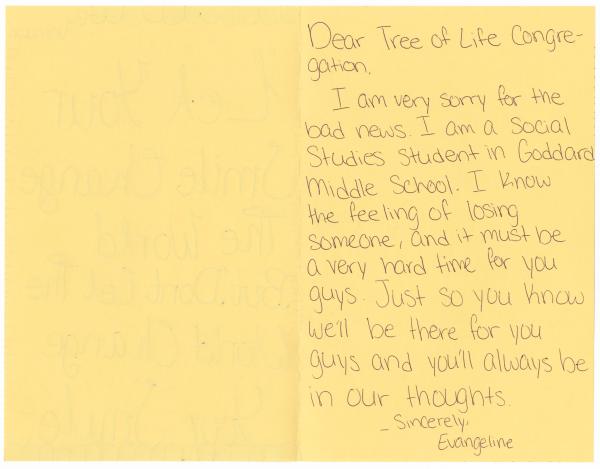 Dear Tree of Life Congre-
gation,
I am very sorry for the
bad news. I am a Social
Studies Student in Goddard
Middle School. I know
the feeling of losing
someone, and it must be
a very hard time for you
guys. Just so you know
we'll be there for you
guys and you'll always be
in our thoughts.
- Sincerely,
Evangeline
Let Your
Smile Change
The World
But Don't Let The
World Change
Your Smile